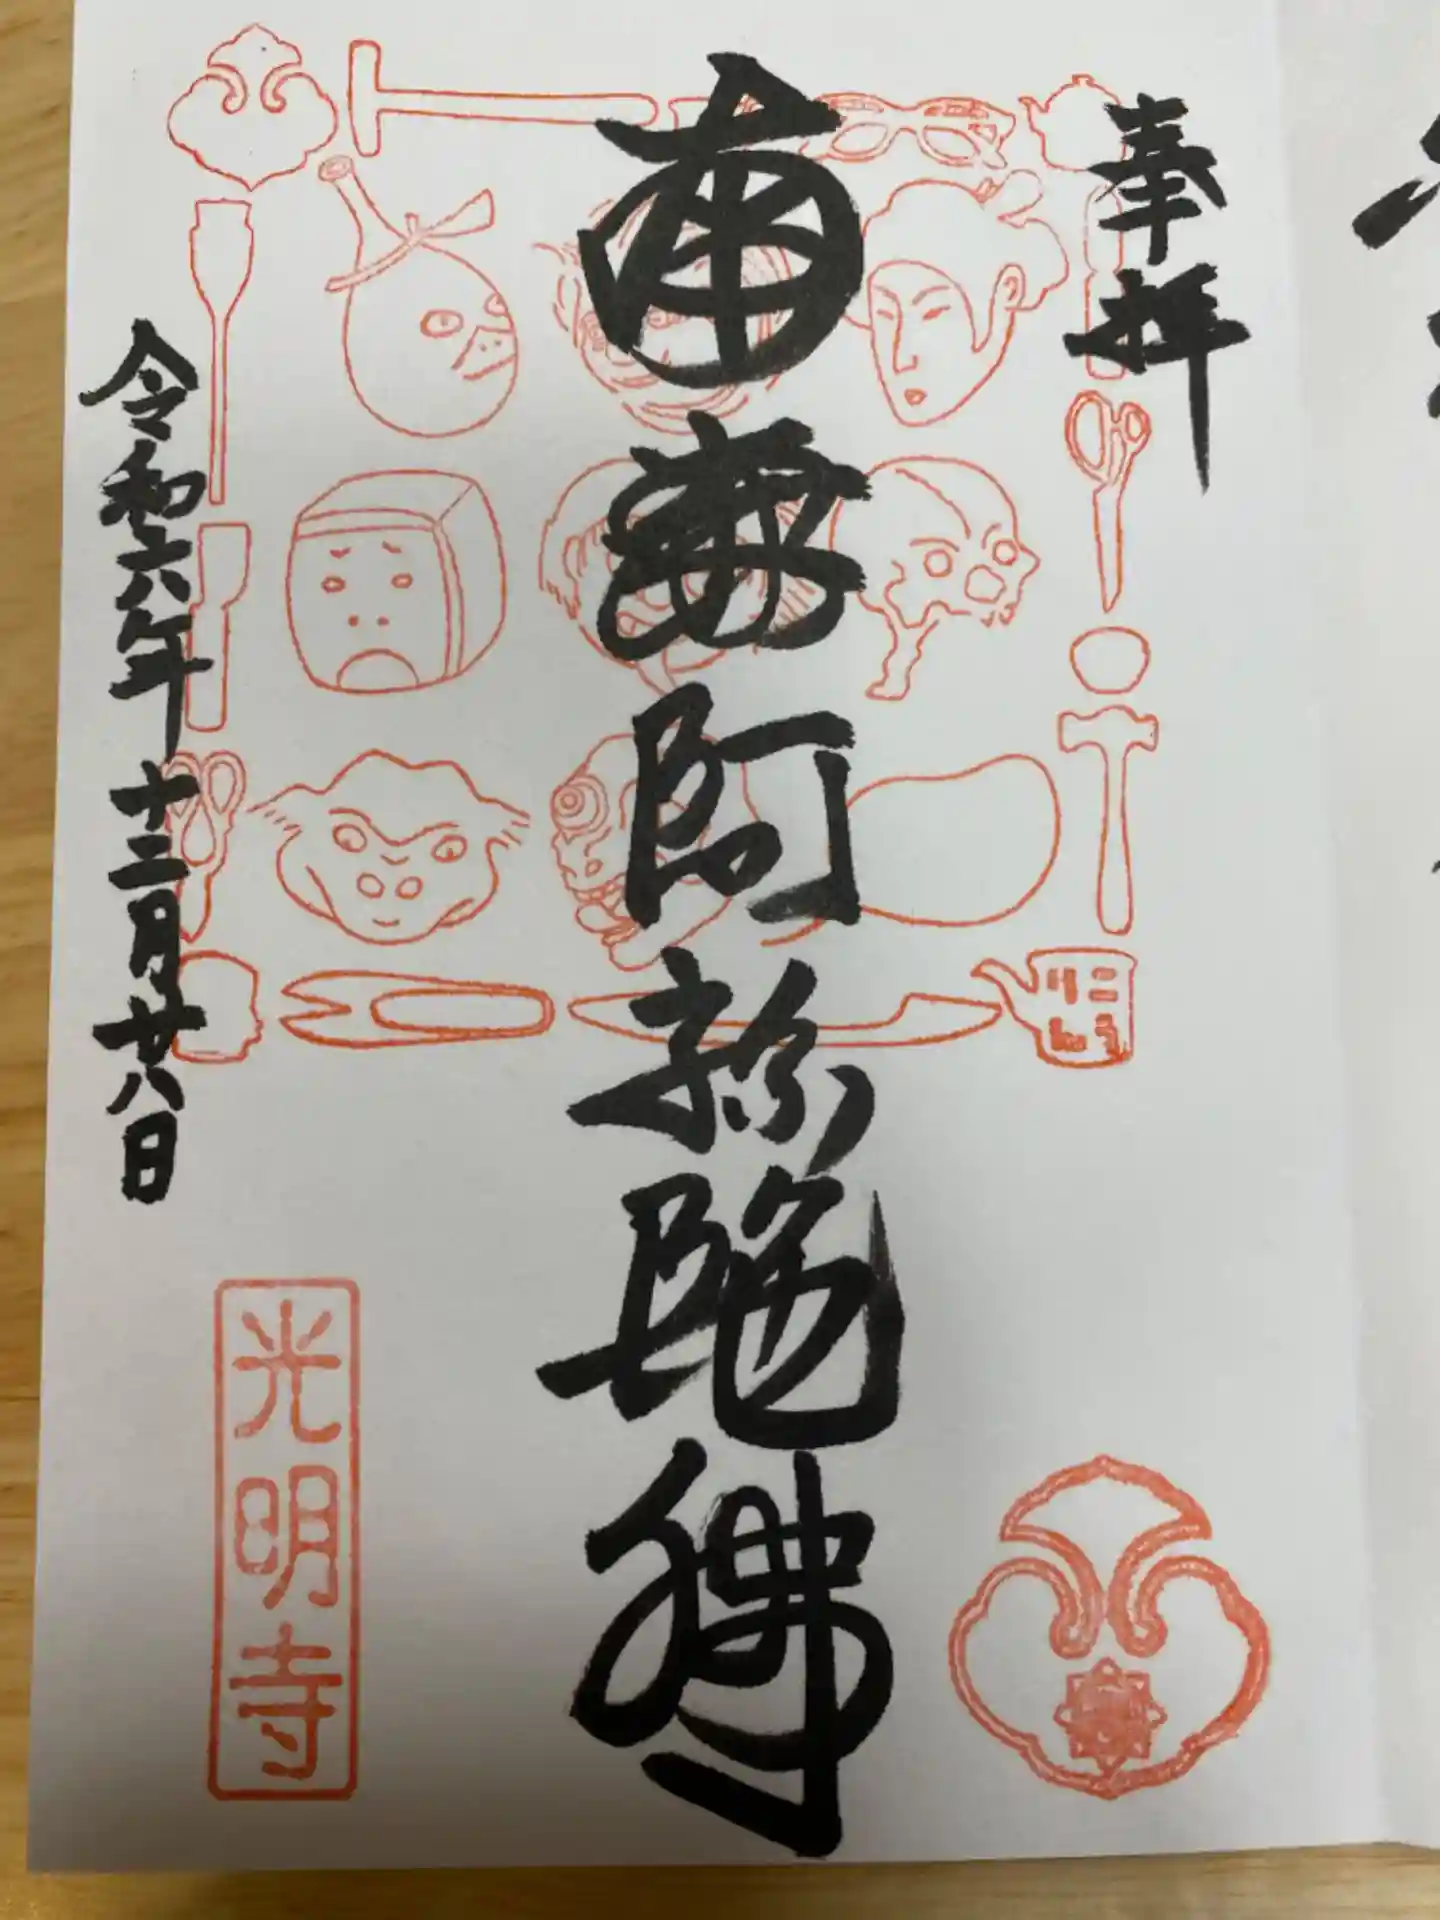 奉拝
南無阿弥陀佛
令和六年十二月廿八日
光明寺